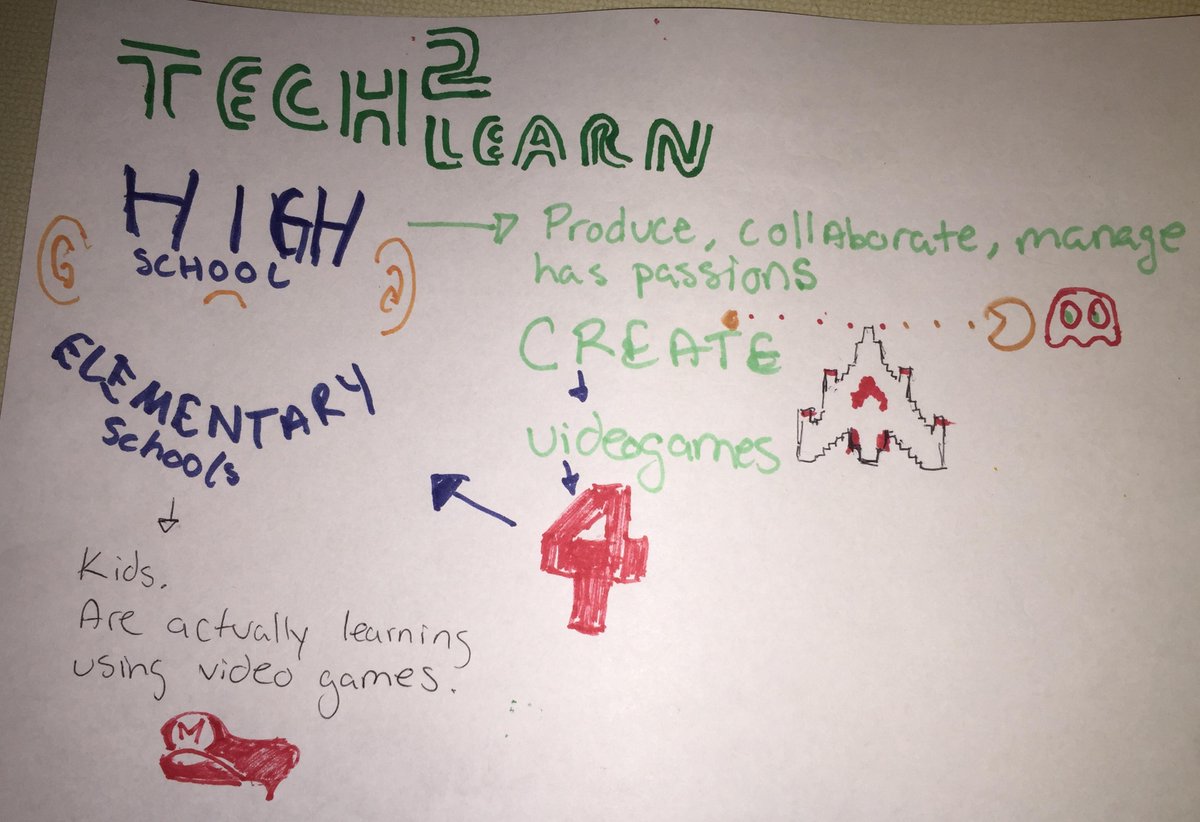 TECH 2
LEARN
HIGH
SCHOOL
Produce, collAborate, manage
has passions
CREATE
videogames
4
ELEMENTARY
Schools
Kids.
Are actually learning
using video games.
M